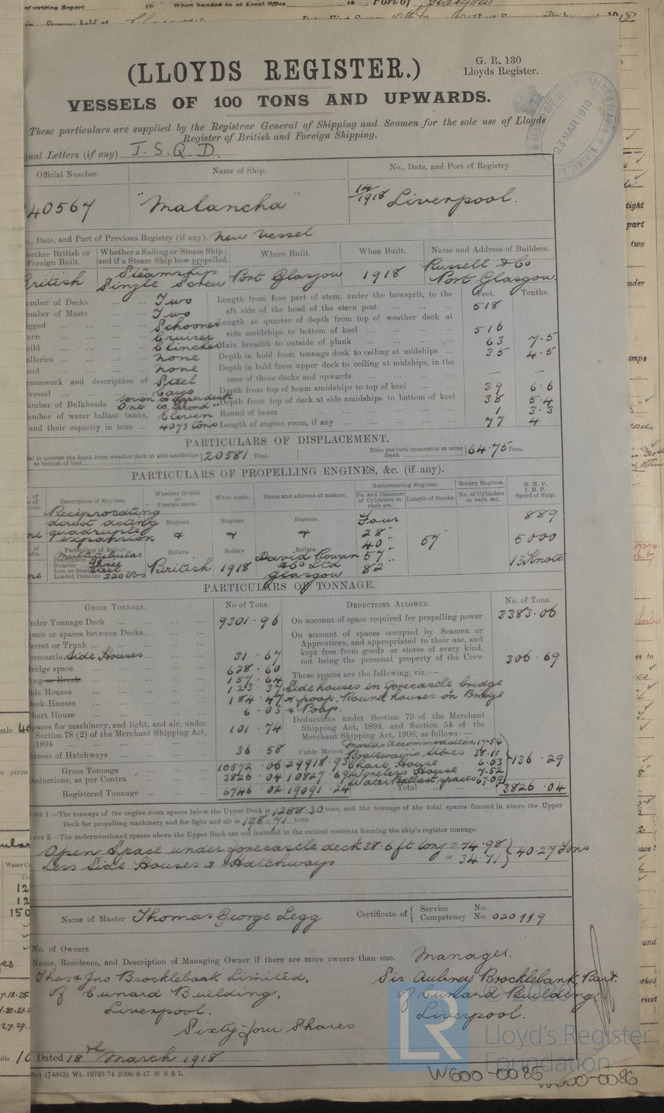 (LLOYDS REGISTER.)
G. R. 130
Lloyds Register.
VESSELS OF 100 TONS AND UPWARDS.
These particulars are supplied by the Registrar General of Shipping and Seamen for the sole use of Lloyds
Register of British and Foreign Shipping.
nal Letters (if any) J. S. Q. D.
23 MAR 1918
Official Number. Name of Ship. No., Date, and Port of Registry.
40567 "Malancha" 14/1918 Liverpool.
., Date, and Port of Previous Registry (if any). New Vessel
hether British or Foreign Built. Whether a Sailing or Steam Ship; and if a Steam Ship how propelled. Where Built. When Built. Name and Address of Builders.
British Steamship Single Screw Port Glasgow 1918 Russell & Co Port Glasgow
Feet. Tenths.
umber of Decks Two
Length from fore part of stem, under the bowsprit, to the
aft side of the head of the stern post 518
umber of Masts Two
gged Schooner
Length at quarter of depth from top of weather deck at
side amidships to bottom of keel 516
ern Cruiser
Main breadth to outside of plank 63 7.5
uild Clincher
Depth in hold from tonnage deck to ceiling at midships 35 4.5
alleries none
Depth in hold from upper deck to ceiling at midships, in the
case of three decks and upwards — —
ead none
amework and description of Steel
vessel Cargo
Depth from top of beam amidships to top of keel 39 6.6
umber of Bulkheads Seven to upper deck One to second
Depth from top of deck at side amidships to bottom of keel 38 5.4
umber of water ballast tanks, Eleven
Round of beam 1 3.3
and their capacity in tons 4073 tons
Length of engine room, if any 77 4
PARTICULARS OF DISPLACEMENT.
al to quarter the depth from weather deck at side amidships to bottom of keel 20581 Tons.
Ditto per inch immersion at same depth 64.75 Tons.
PARTICULARS OF PROPELLING ENGINES, &c. (if any).
Description of Engines. Whether British or Foreign made. When made. Name and address of makers. Reciprocating Engines. Rotary Engines. N.H.P. I.H.P. Speed of Ship.
No. and Diameter of Cylinders in each set. Length of Stroke. No. of Cylinders in each set.
Reciprocating direct acting quadruple expansion
Engines. Engines. Engines.
Four 28" 40" 57" 82" 57" 889 5000 13 Knots
Particulars of Boilers. Boilers. Boilers Boilers.
Multitubular
Number Three
Iron or Steel Steel
Loaded Pressure 220 lbs
British 1918 David Rowan & Co Ltd Glasgow
PARTICULARS OF TONNAGE.
GROSS TONNAGE. No of Tons. DEDUCTIONS ALLOWED. No. of Tons.
nder Tonnage Deck 9301.96
On account of space required for propelling power 3383.06
pace or spaces between Decks
urret or Trunk
On account of spaces occupied by Seamen or
Apprentices, and appropriated to their use, and
kept free from goods or stores of every kind,
not being the personal property of the Crew 306.69
orecastle Side Houses 31.67
ridge space 628.60
These spaces are the following, viz.:—
oop or Break 157.64
ide Houses 123.37
Side houses in forecastle bridge
eck Houses 184.47
& poop. Round houses on Bridge
hart House 6.03
& Poop.
paces for machinery, and light, and air, under
Section 78 (2) of the Merchant Shipping Act,
1894 101.74
Deductions under Section 79 of the Merchant
Shipping Act, 1894, and Section 54 of the
Merchant Shipping Act, 1906, as follows:—
xcess of Hatchways 36.58
Cubic Metres
Masters Accommodation 17.54
Boatswain's Stores 38.11
Chart House 6.03
Wireless House 7.52
Water Ballast spaces 67.09
136.29
Gross Tonnage 10572.06 29918.93
Deductions, as per Contra 3826.04 10827.69
Total 3826.04
Registered Tonnage 6746.02 19091.24
OTE 1.—The tonnage of the engine room spaces below the Upper Deck is 1288.30 tons, and the tonnage of the total spaces framed in above the Upper
Deck for propelling machinery and for light and air is 198.71 tons.
OTE 2.—The undermentioned spaces above the Upper Deck are not included in the cubical contents forming the ship's register tonnage.
Open Space under forecastle deck 38.6 ft long = 74.98
Less Side Houses & Hatchways = 34.71
40.27 Tons
Name of Master Thomas George Legg
Certificate of Service No.
Competency No. 020119
No. of Owners
Name, Residence, and Description of Managing Owner if there are more owners than one. Manager.
Thos & Jno Brocklebank Limited, Sir Aubrey Brocklebank Bart.
of Cunard Building, of Cunard Building
Liverpool. Liverpool.
Sixty-four Shares
Dated 18th March 1918
(74343) Wt. 19793/74 2000 8-17 W B & L
LR
Lloyd's Register
Foundation
W600-0086